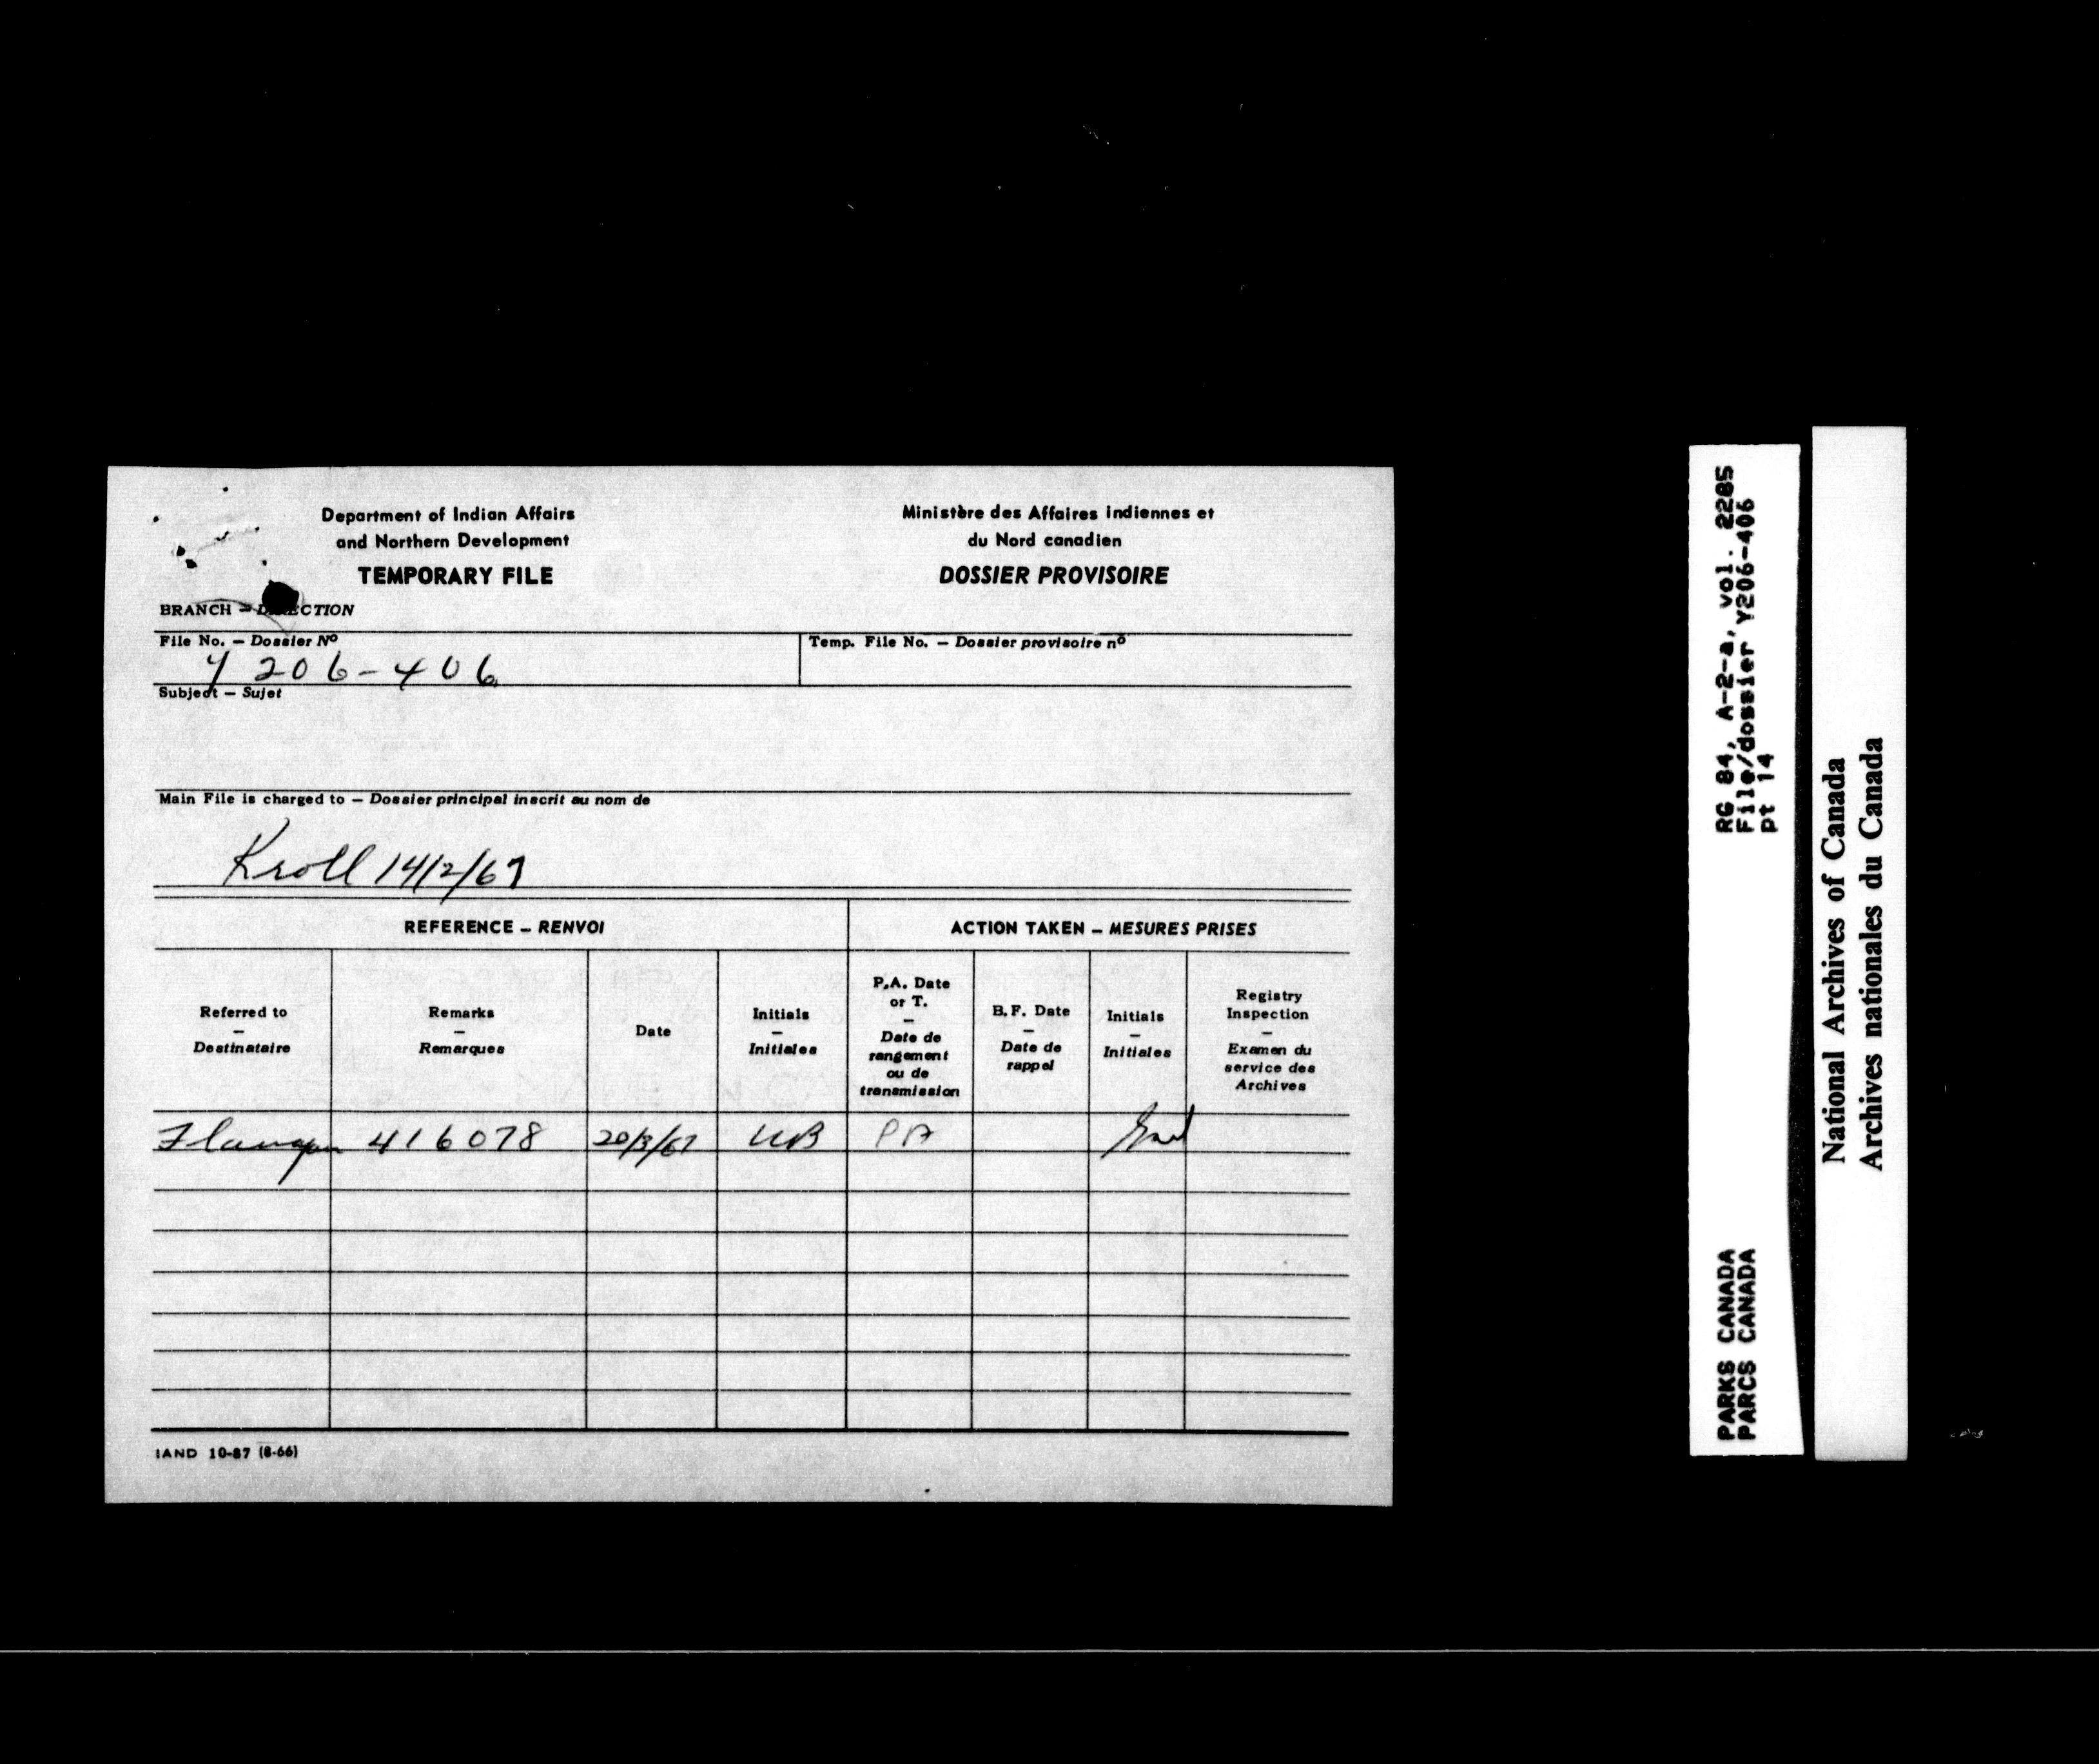 Department of Indian Affairs
and Northern Development
TEMPORARY FILE
Ministère des Affaires indiennes et
du Nord canadien
DOSSIER PROVISOIRE
BRANCH – DIRECTION
File No. – Dossier Nº
Y 206-406
Temp. File No. – Dossier provisoire nº
Subject – Sujet
Main File is charged to – Dossier principal inscrit au nom de
Kroll 14/2/67
REFERENCE – RENVOI
ACTION TAKEN – MESURES PRISES
Referred to
–
Destinataire
Remarks
–
Remarques
Date
Initials
–
Initiales
P.A. Date
or T.
–
Date de
rangement
ou de
transmission
B.F. Date
–
Date de
rappel
Initials
–
Initiales
Registry
Inspection
–
Examen du
service des
Archives
416078 20/3/67 PA
IAND 10-87 (8-66)
RG 84, A-2-a, vol. 2285
File/dossier Y206-406
pt 14
PARKS CANADA
PARCS CANADA
National Archives of Canada
Archives nationales du Canada